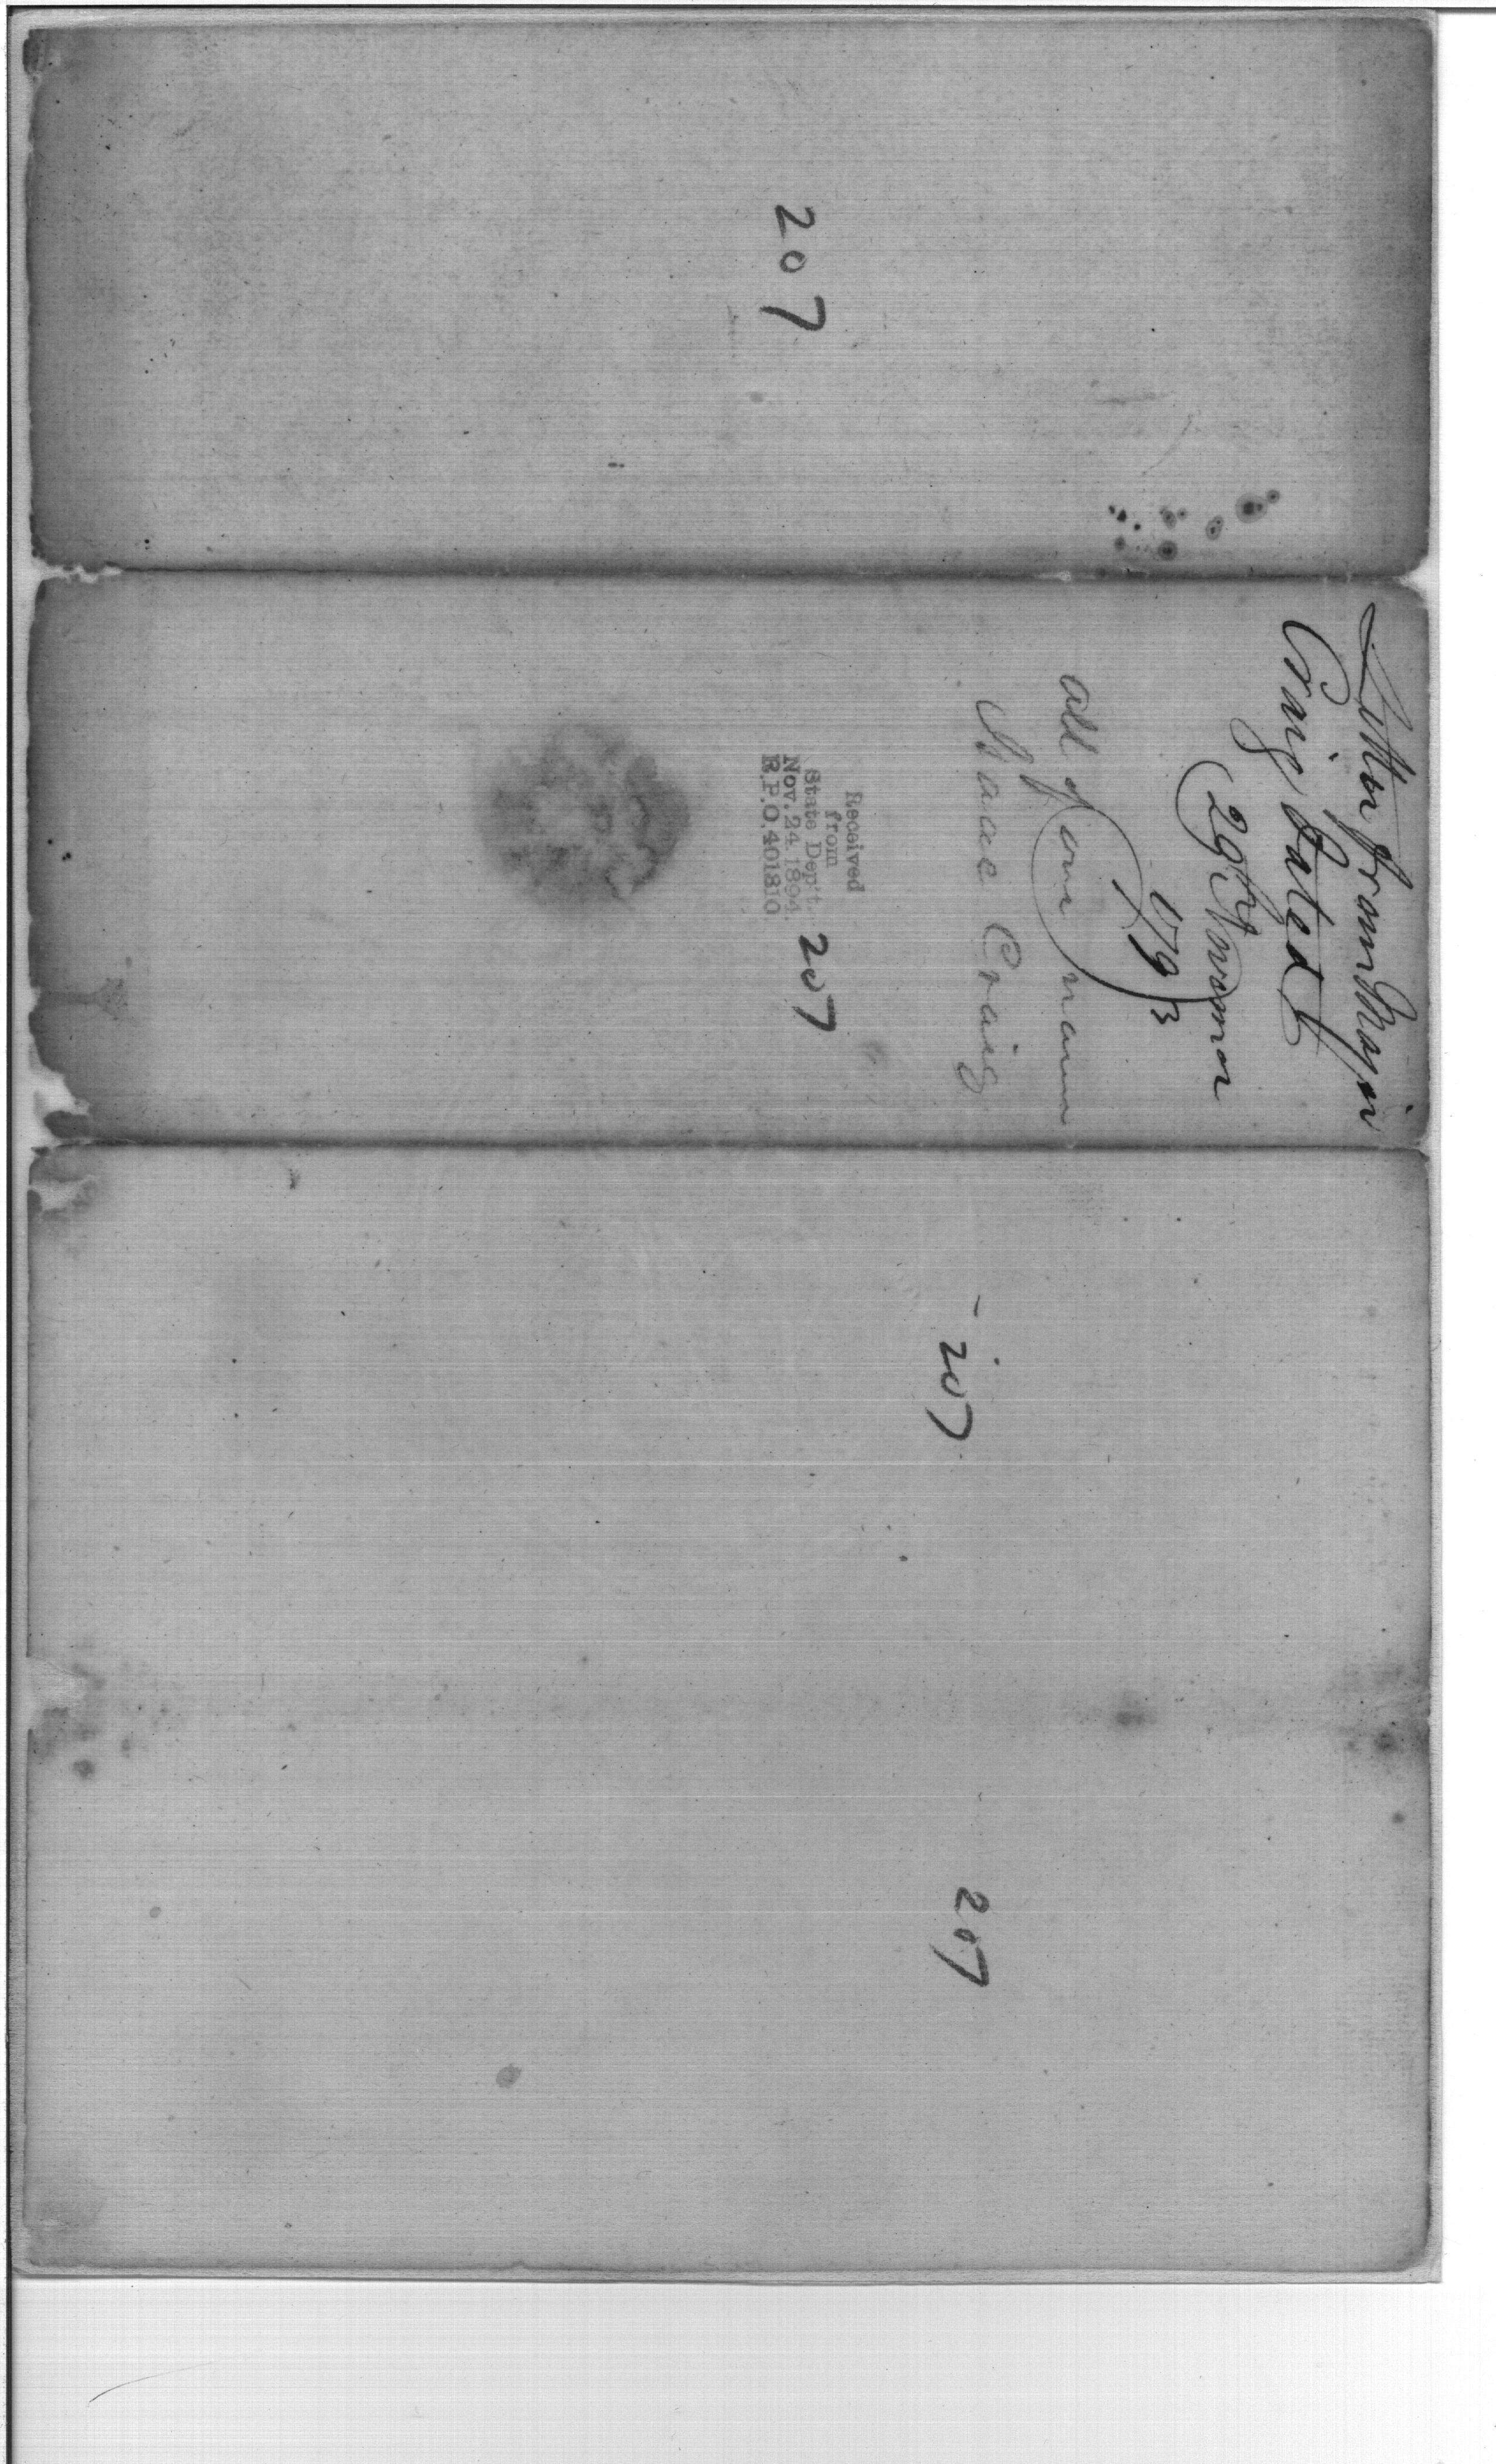 207
Letter from Major
Craig dated
29th Novemr
1793
all of one name
Isaac Craig
Received
from
State Dep't.
Nov. 24. 1894.
R.P.O. 401810.
207
207
207